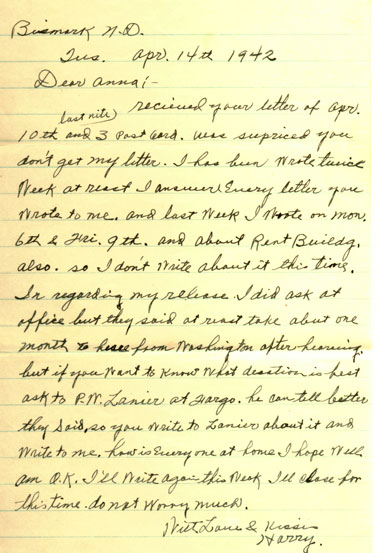 Bismark N.D.
Tus. Apr. 14th 1942
Dear Anna;-
last nite) recieved your letter of Apr.
10th and 3 Post Card. was supriced you
don't get my letter. I has been wrote twice
Week at reast I answer Every letter you
wrote to me. and last Week I wrote on Mon.
6th & Fri. 9th. and about Rent Buildg.
also. so I don't write about it this time.
In regarding my release. I did ask at
office but they said at reast take abut one
month to from Washington after hearing.
but if you want to know what is best
ask to P.W. Lanier at Fargo. he can tell better
they said, so you write to Lanier about it and
write to me, how is Everyone at home. I hope Well.
am O.K. I'll write again this Week I'll close for
this time. do not worry much.
With Love & Kisses
Harry.